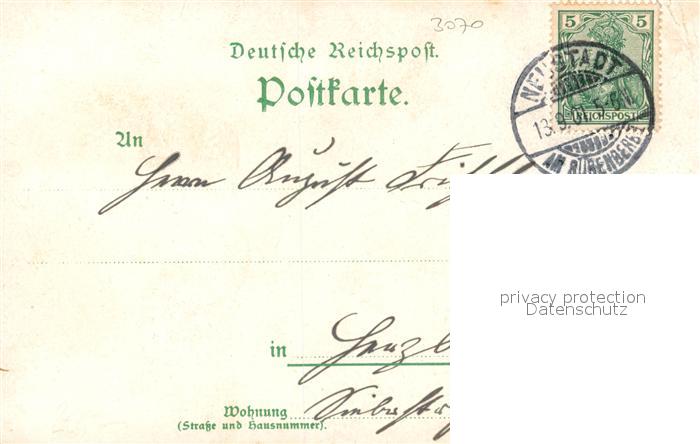 3070
5 5
Deutsche Reichspost.
NEUSTADT
Postkarte.
REICHSPOST
13.9.0 5-6N.
AM RÜBENBERGE
An
Herrn August
privacy protection
Datenschutz
in
Wohnung
(Straße und Hausnummer).